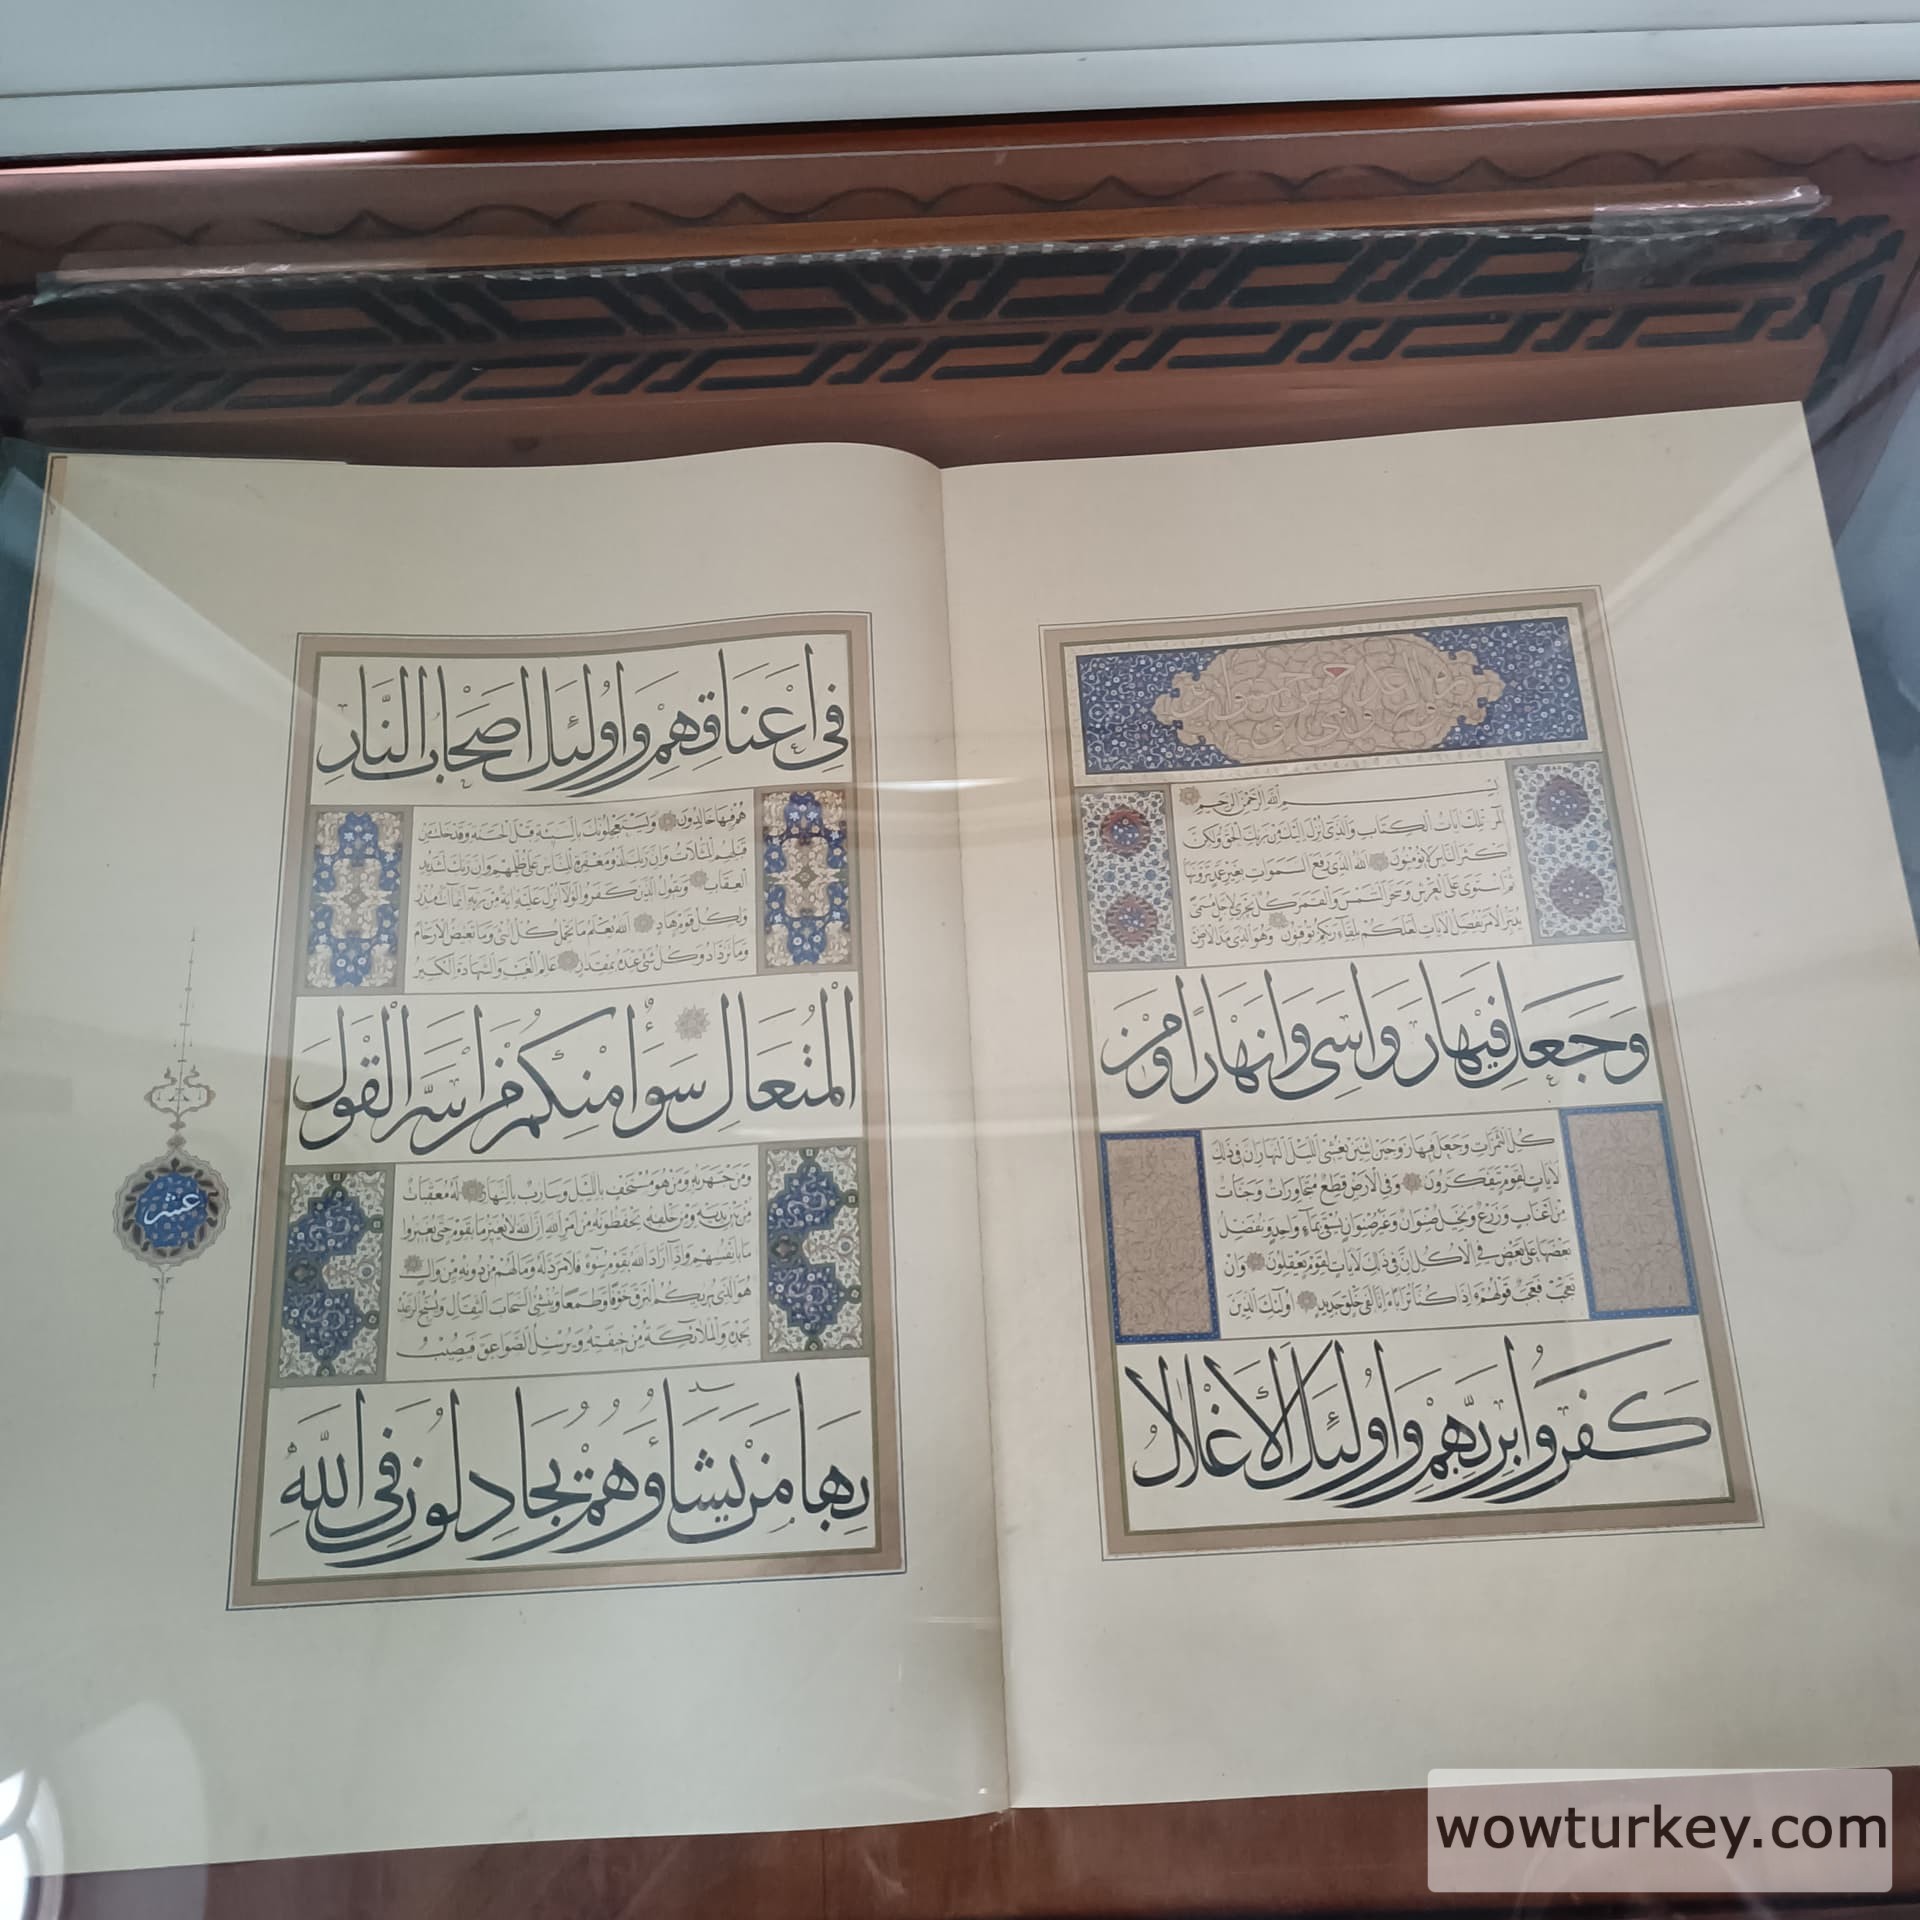 بسم الله الرحمن الرحيم
المر تلك ايات الكتاب والذى انزل اليك من ربك الحق ولكن
اكثر الناس لا يؤمنون الله الذى رفع السموات بغير عمد ترونها
ثم استوى على العرش وسخر الشمس والقمر كل يجرى لاجل مسمى
يدبر الامر يفصل الايات لعلكم بلقاء ربكم توقنون وهو الذى مد الارض
وَجَعَلَ فيهَا رَوَاسِىَ وَاَنهَارًا وَمِنْ
كل الثمرات وجعل فيها زوجين اثنين يغشى الليل النهار ان فى ذلك
لايات لقوم يتفكرون وفى الارض قطع متجاورات وجنات
من اعناب وزرع ونخيل صنوان وغير صنوان يسقى بماء واحد ونفضل
بعضها على بعض فى الاكل ان فى ذلك لايات لقوم يعقلون وان
تعجب فعجب قولهم ءاذا كنا ترابا ءانا لفى خلق جديد اولئك الذين
كَفَرُوا بِرَبِّهِمْ وَاُولٰئِكَ الْاَغْلَالُ
فِى اَعْنَاقِهِمْ وَاُولٰئِكَ اَصْحَابُ النَّارِ
هم فيها خالدون ويستعجلونك بالسيئة قبل الحسنة وقد خلت من
قبلهم المثلات وان ربك لذو مغفرة للناس على ظلمهم وان ربك لشديد
العقاب ويقول الذين كفروا لولا انزل عليه اية من ربه انما انت منذر
ولكل قوم هاد الله يعلم ما تحمل كل انثى وما تغيض الارحام
وما تزداد وكل شئ عنده بمقدار عالم الغيب والشهادة الكبير
الْمُتَعَالِ سَوَاءٌ مِنْكُمْ مَنْ اَسَرَّ الْقَوْلَ
ومن جهر به ومن هو مستخف بالليل وسارب بالنهار له معقبات
من بين يديه ومن خلفه يحفظونه من امر الله ان الله لا يغير ما بقوم حتى يغيروا
ما بانفسهم واذا اراد الله بقوم سوء فلا مرد له وما لهم من دونه من وال
هو الذى يريكم البرق خوفا وطمعا وينشئ السحاب الثقال ويسبح الرعد
بحمده والملائكة من خيفته ويرسل الصواعق فيصيب
بِهَا مَنْ يَشَاءُ وَهُمْ يُجَادِلُونَ فِى اللّٰهِ
عشر
wowturkey.com